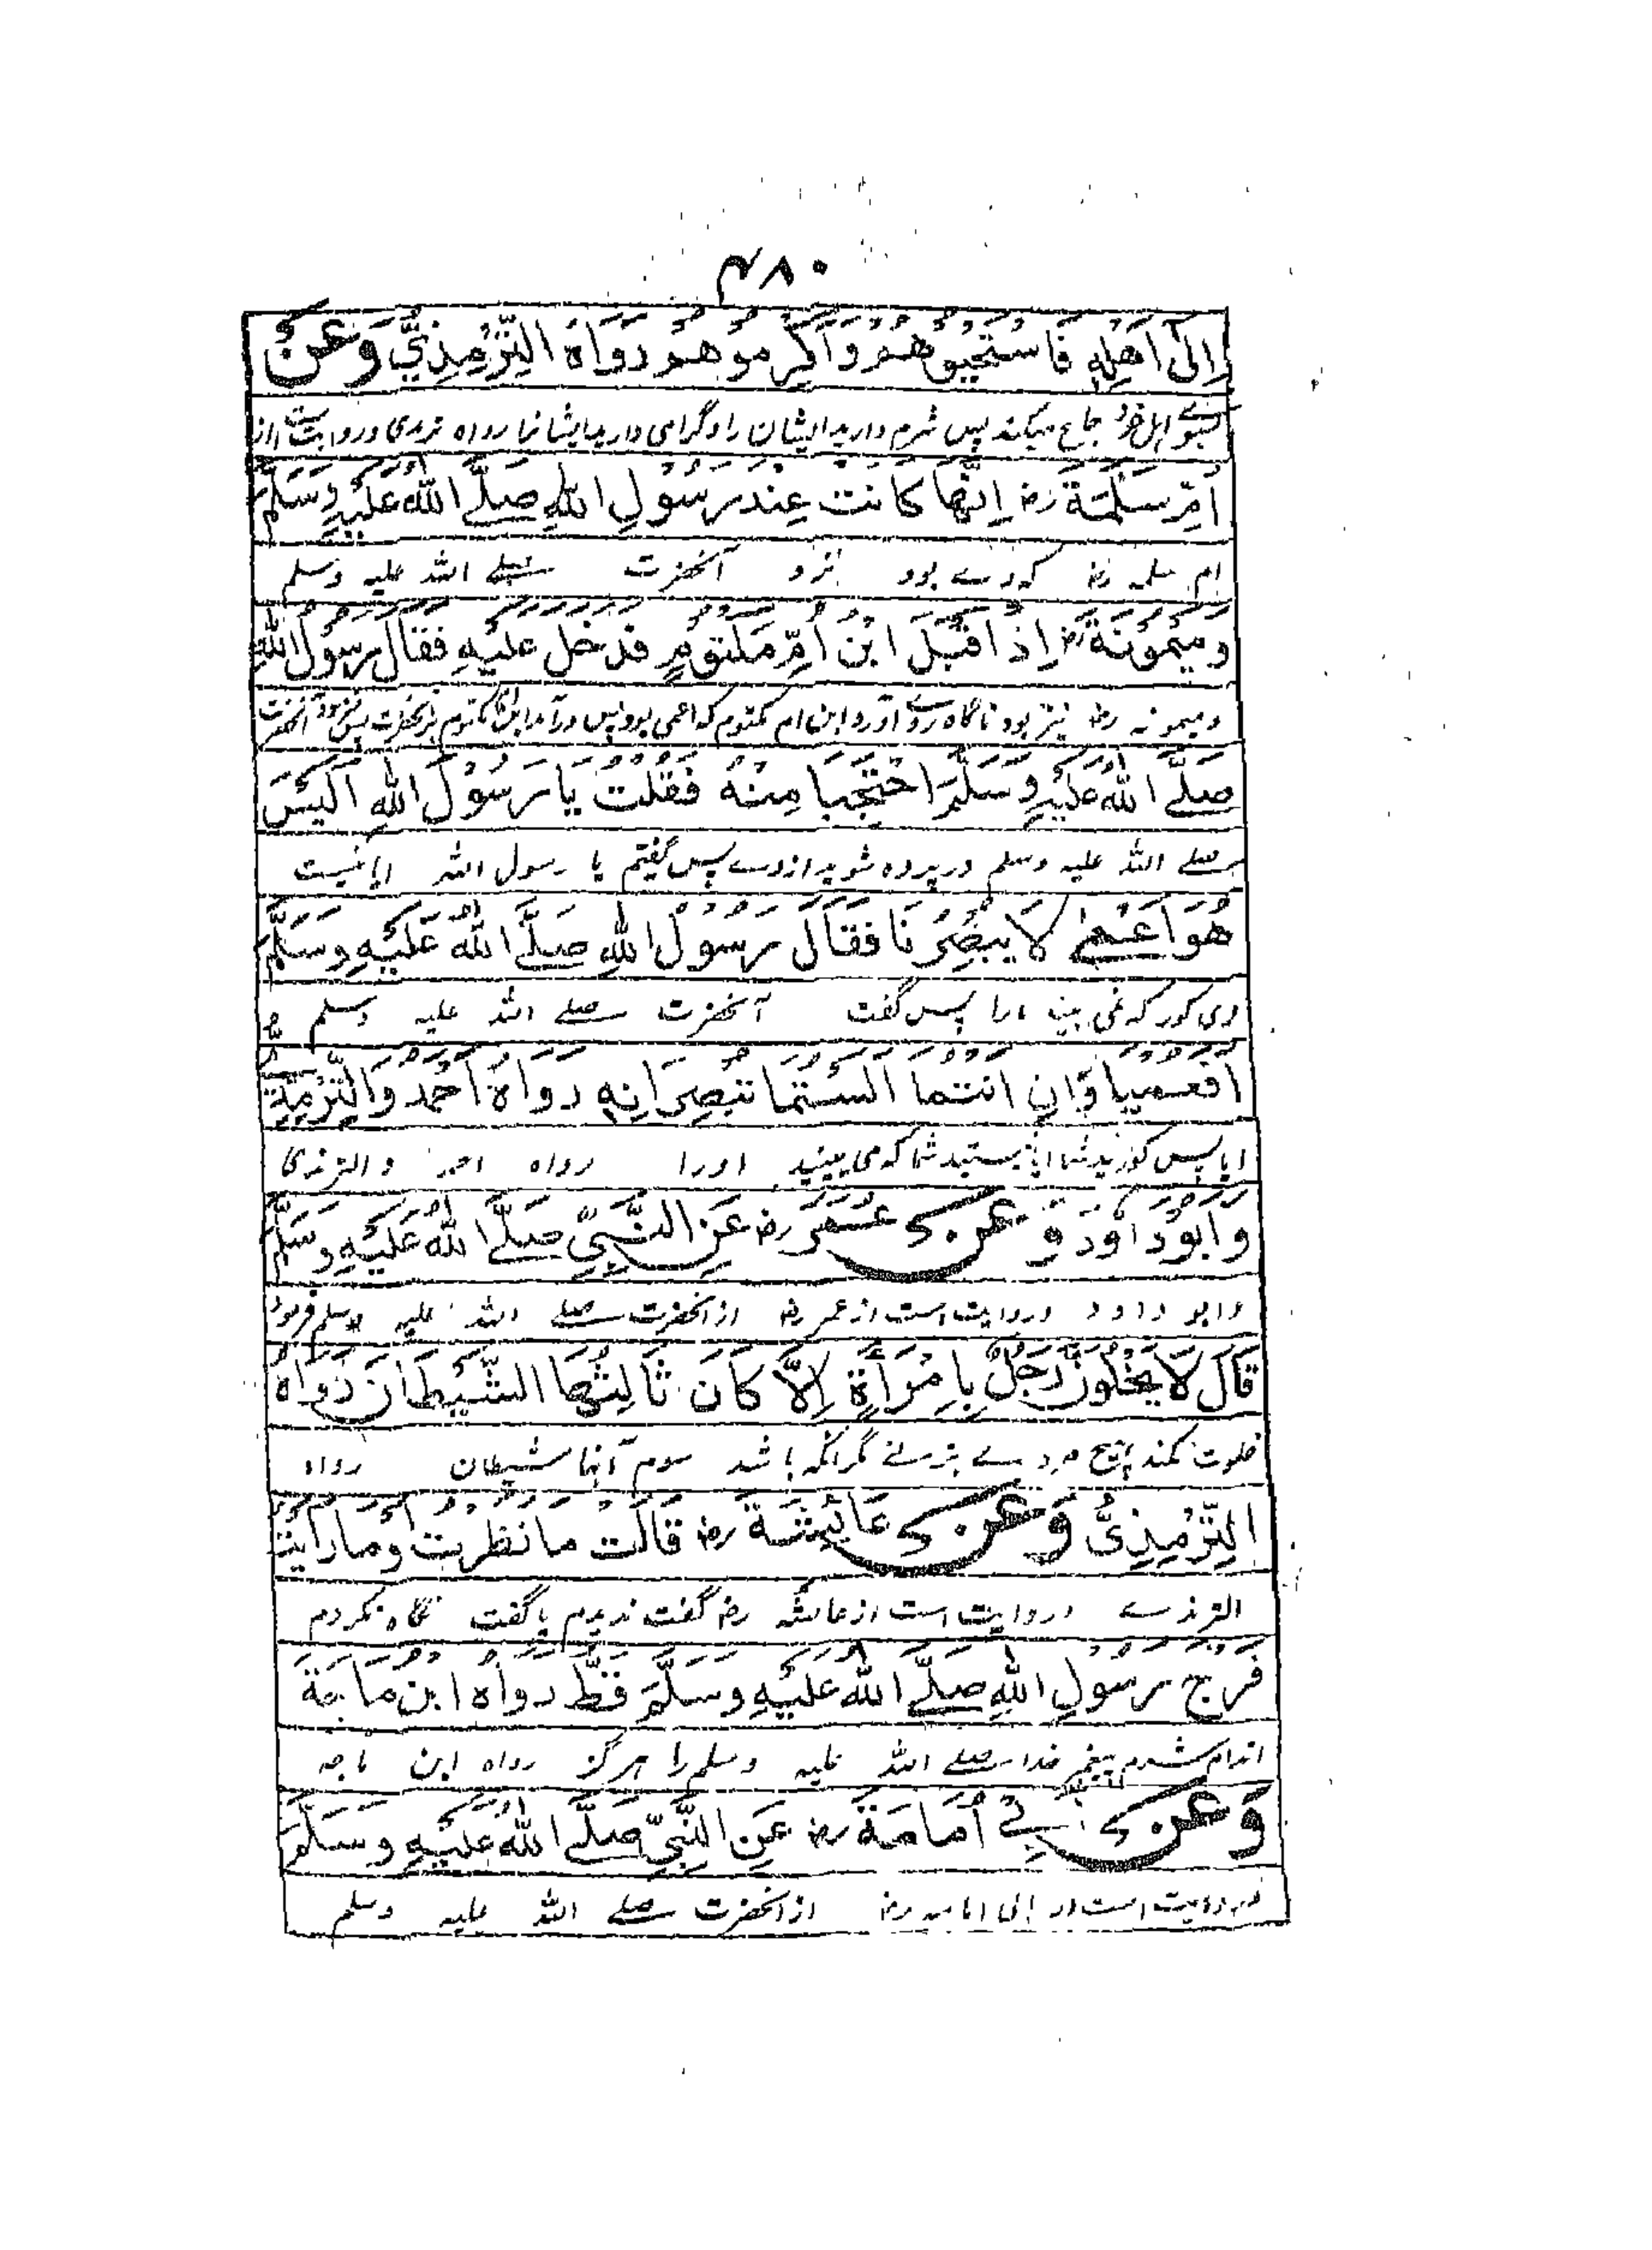 ۴۸۰
إِلَى أَهْلِهِ فَاسْتَحْيُوهُمْ وَأَكْرِمُوهُمْ رَوَاهُ التِّرْمِذِيُّ وَعَنْ
بسوے اہل خود جماع میکند پس شرم دارید ایشان را و گرامی دارید ایشانرا رواہ ترمذی و روایت است از
اُمِّ سَلَمَةَ رض اِنَّهَا كَانَتْ عِنْدَ رَسُولِ اللهِ صَلَّے اللهُ عَلَيْهِ وَسَلَّمَ
ام سلمہ رض کہ وے بود نزد آنحضرت صلے اللہ علیہ وسلم
وَمَيْمُوْنَةَ رض اِذْ اَقْبَلَ ابْنُ اُمِّ مَكْتُوْمٍ فَدَخَلَ عَلَيْهِ فَقَالَ رَسُوْلُ اللهِ
و میمونہ رض نیز بود ناگاہ روے آورد ابن ام مکتوم کہ اعمی بود پس درآمد ابن مکتوم بر آنحضرت پس فرمود آنحضرت
صَلَّے اللهُ عَلَيْهِ وَسَلَّمَ احْتَجِبَا مِنْهُ فَقُلْتُ يَا رَسُوْلَ اللهِ اَلَيْسَ
صلے اللہ علیہ وسلم در پردہ شوید از وے پس گفتم یا رسول اللہ ایا نیست
هُوَ اَعْمٰے لَا يُبْصِرُنَا فَقَالَ رَسُوْلُ اللهِ صَلَّے اللهُ عَلَيْهِ وَسَلَّمَ
وی کور کہ نمی بیند مارا پس گفت آنحضرت صلے اللہ علیہ وسلم
اَفَعَمْيَاوَانِ اَنْتُمَا اَلَسْتُمَا تُبْصِرَانِهِ رَوَاهُ اَحْمَدُ وَالتِّرْمِذِيُّ
ایا پس کورید شما ایا نیستید شما کہ می بینید اورا رواہ احمد و الترمذی
وَاَبُوْ دَاوُدَ وَ عَنْ عُمَرَ رض عَنِ النَّبِيِّ صَلَّے اللهُ عَلَيْهِ وَسَلَّمَ
و ابو داود و روایت است از عمر رض از آنحضرت صلے اللہ علیہ وسلم فرمود
قَالَ لَا يَخْلُوَنَّ رَجُلٌ بِامْرَأَةٍ اِلَّا كَانَ ثَالِثَهُمَا الشَّيْطَانُ رَوَاهُ
خلوت نکند ہیچ مردے بزنے مگر آنکہ باشد سوم آنہا شیطان رواہ
التِّرْمِذِيُّ وَ عَنْ عَائِشَةَ رض قَالَتْ مَا نَظَرْتُ وَمَا رَأَيْتُ
الترمذے و روایت است از عائشہ رض گفت ندیدم یا گفت نگاہ نکردم
فَرْجَ رَسُوْلِ اللهِ صَلَّے اللهُ عَلَيْهِ وَسَلَّمَ قَطُّ رَوَاهُ ابْنُ مَاجَةَ
اندام پیغمبر خدا صلے اللہ علیہ وسلم را ہرگز رواہ ابن ماجہ
وَ عَنْ اَبِیْ اُمَامَةَ رض عَنِ النَّبِيِّ صَلَّے اللهُ عَلَيْهِ وَسَلَّمَ
و روایت است از ابی امامہ رض از آنحضرت صلے اللہ علیہ وسلم